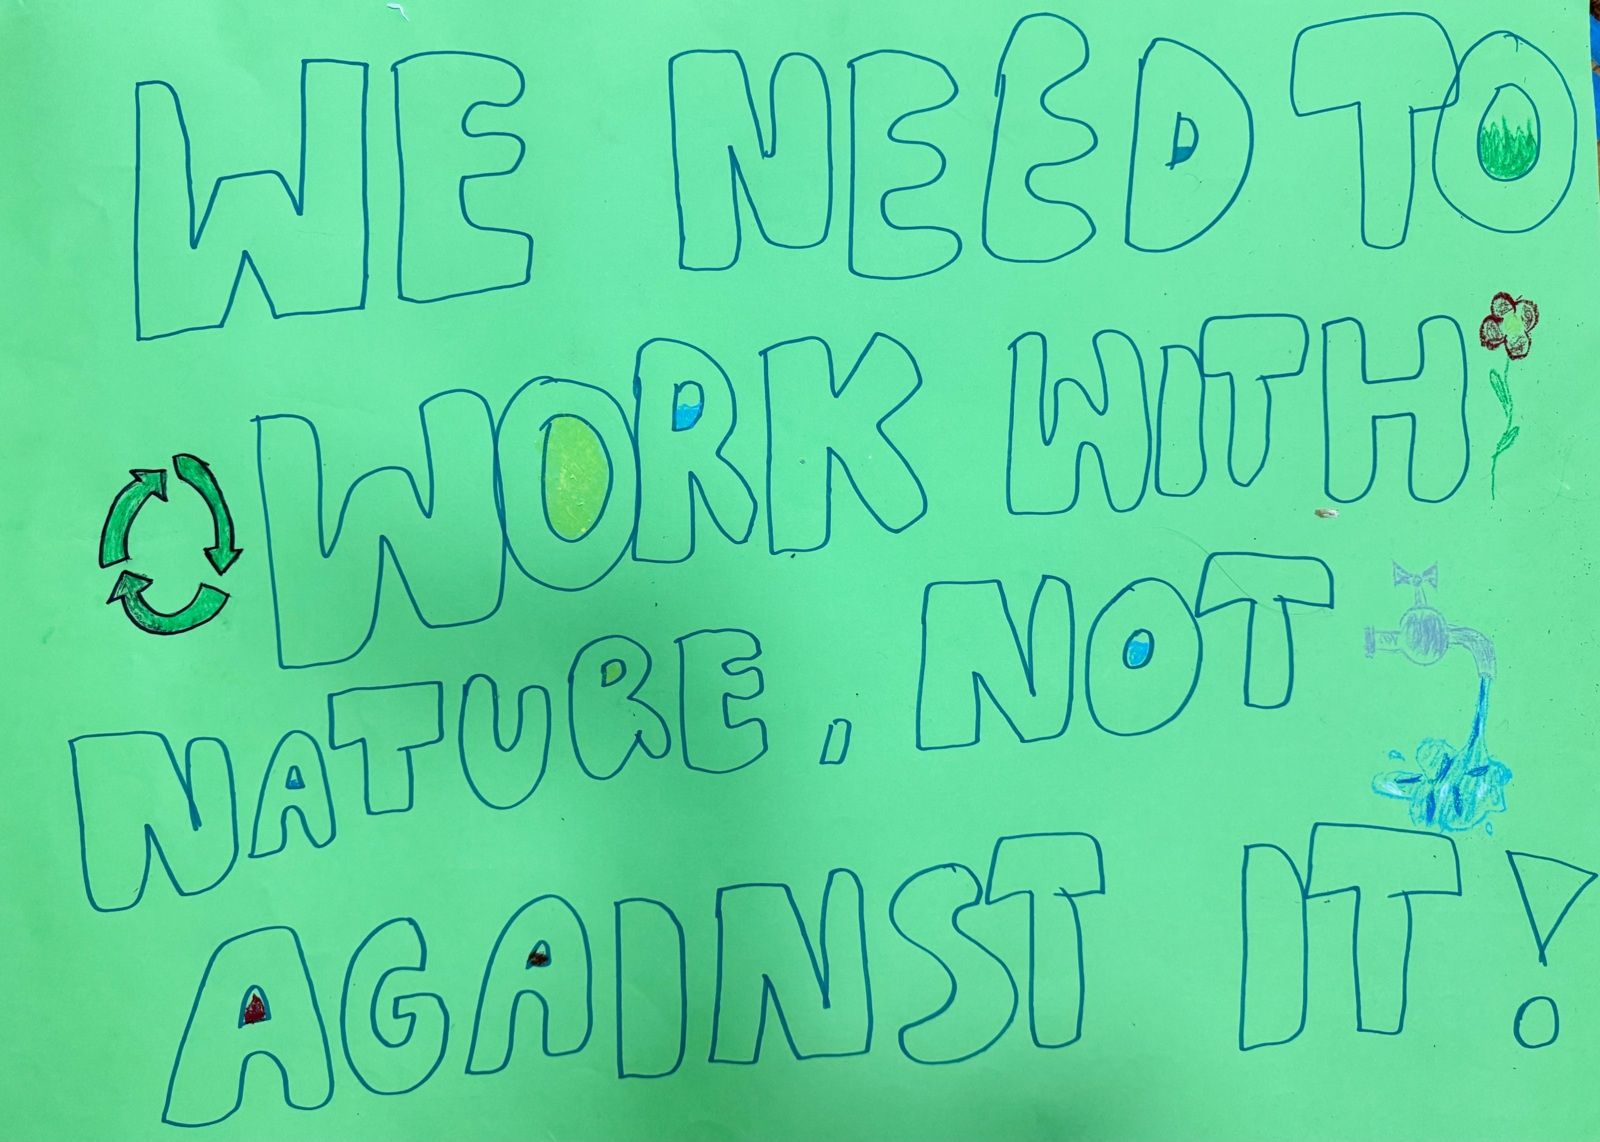 WE NEED TO
WORK WITH
NATURE, NOT
AGAINST IT!